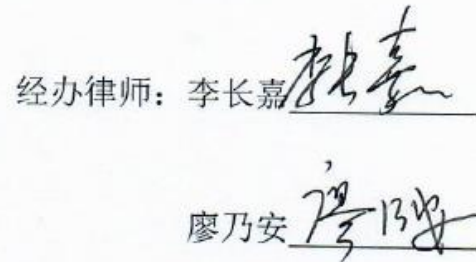 经办律师：李长嘉 李长嘉
廖乃安 廖乃安